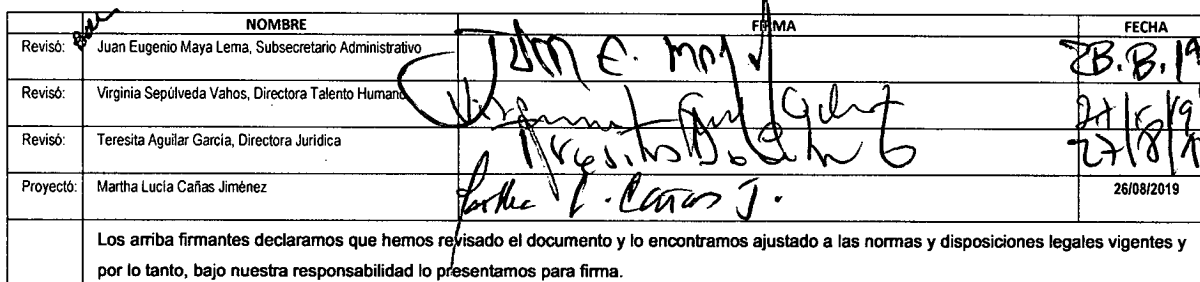 NOMBRE FIRMA FECHA
Revisó: Juan Eugenio Maya Lema, Subsecretario Administrativo Juan E. Maya 28.8.19
Revisó: Virginia Sepúlveda Vahos, Directora Talento Humano 27/8/19
Revisó: Teresita Aguilar García, Directora Jurídica 27/8/19
Proyectó: Martha Lucía Cañas Jiménez Martha L. Cañas J. 26/08/2019
Los arriba firmantes declaramos que hemos revisado el documento y lo encontramos ajustado a las normas y disposiciones legales vigentes y
por lo tanto, bajo nuestra responsabilidad lo presentamos para firma.